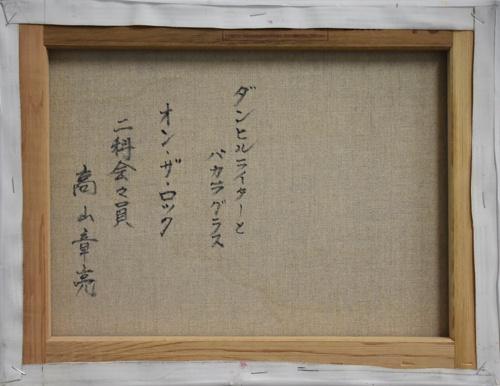 ダンヒルライターと
バカラグラス
オン・ザ・ロック
二科会々員
高山章亮